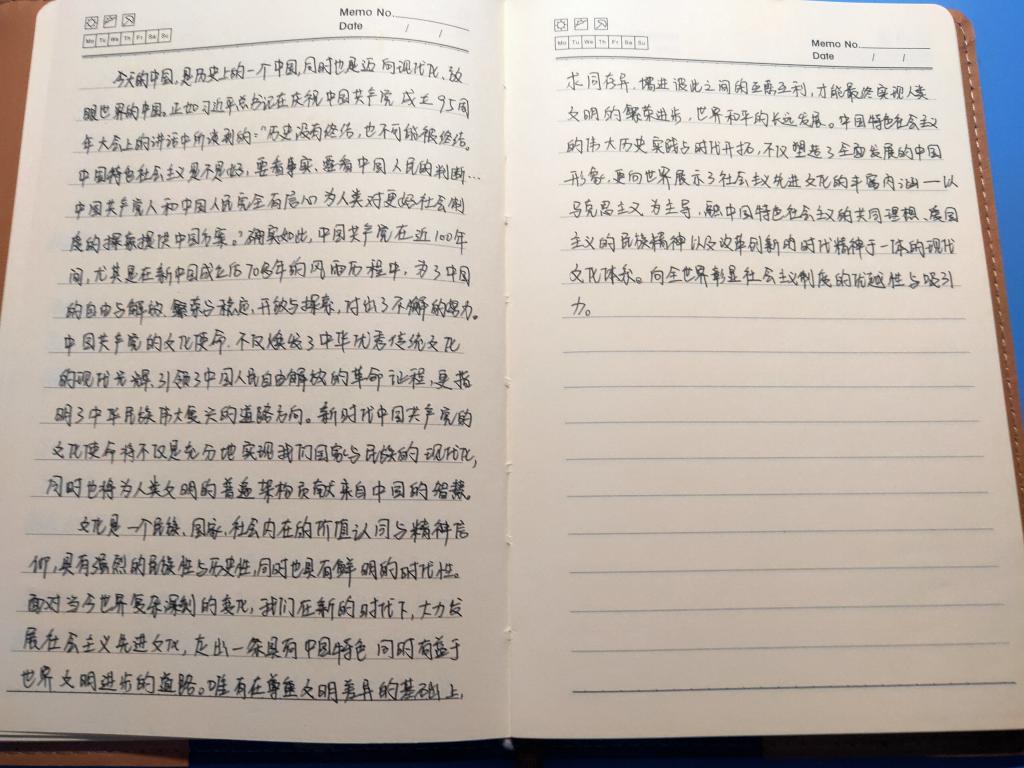 Memo No.
Date / /
Mo Tu We Th Fr Sa Su
今天的中国,是历史上的一个中国,同时也是迈向现代化、放
眼世界的中国。正如习近平总书记在庆祝中国共产党成立95周
年大会上的讲话中所谈到的:"历史没有终结,也不可能被终结。
中国特色社会主义是不是好,要看事实、要看中国人民的判断…
中国共产党人和中国人民完全有信心为人类对更好社会制
度的探索提供中国方案。"确实如此,中国共产党在近100年
间,尤其是在新中国成立后70多年的风雨历程中,为了中国
的自由与解放、繁荣与稳定、开放与探索,付出了不懈的努力。
中国共产党的文化使命,不仅焕发了中华优秀传统文化
的现代光辉,引领了中国人民自由解放的革命征程,更指
明了中华民族伟大复兴的道路方向。新时代中国共产党的
文化使命将不仅是充分地实现我们国家与民族的现代化,
同时也将为人类文明的普遍架构贡献来自中国的智慧。
文化是一个民族、国家、社会内在的价值认同与精神信
仰,具有强烈的民族性与历史性,同时也具有鲜明的时代性。
面对当今世界复杂深刻的变化,我们在新的时代下,大力发
展社会主义先进文化,走出一条具有中国特色 同时有益于
世界文明进步的道路。唯有在尊重文明差异的基础上,
Memo No.
Date / /
Mo Tu We Th Fr Sa Su
求同存异,增进彼此之间的互惠互利,才能最终实现人类
文明的繁荣进步,世界和平的长远发展。中国特色社会主义
的伟大历史实践与时代开拓,不仅塑造了全面发展的中国
形象,更向世界展示了社会主义先进文化的丰富内涵——以
马克思主义为主导,融中国特色社会主义的共同理想、爱国
主义的民族精神以及改革创新的时代精神于一体的现代
文化体系。向全世界彰显社会主义制度的优越性与吸引
力。